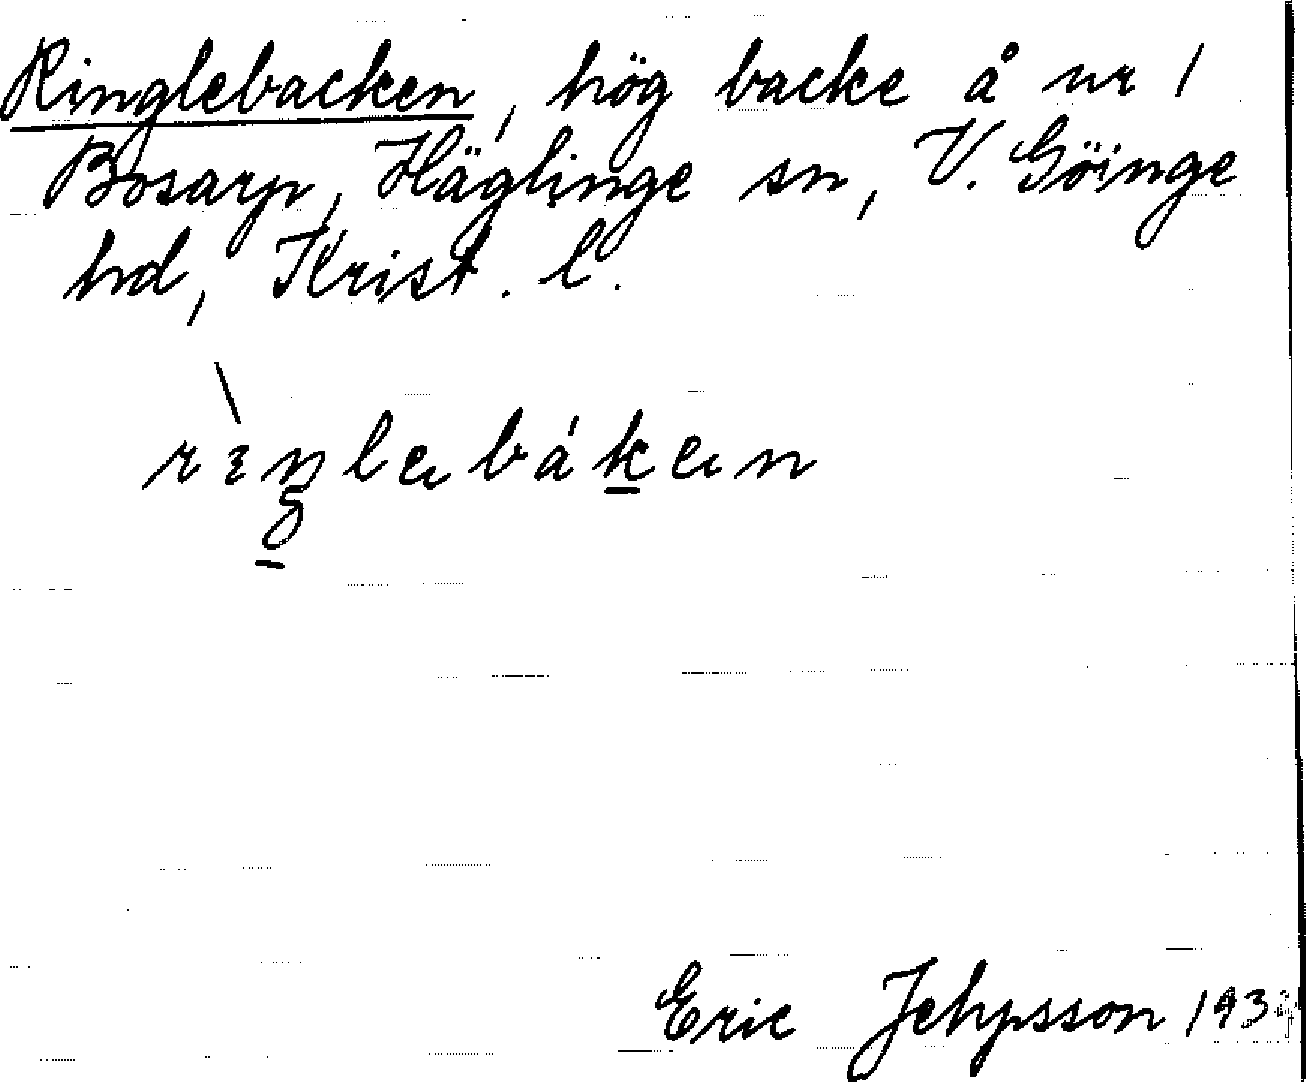 Ringlebacken, hög backe å nr 1
Bosarp, Häglinge sn, V. Göinge
hd, Krist. l.
Eric Jehpsson